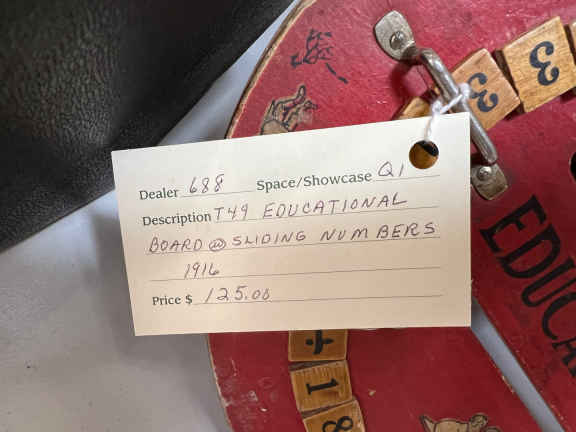 3
3
Dealer 688 Space/Showcase Q1
Description T49 EDUCATIONAL
BOARD @ SLIDING NUMBERS
1916
Price $ 125.00
EDUCA
+
1
8